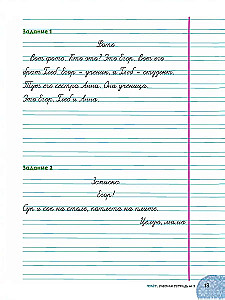 Задание 1
Фото.
Вот фото. Кто это? Это Егор. Вот его
брат Глеб. Егор – ученик, а Глеб – студент.
Тут его сестра Анна. Она ученица.
Это Егор, Глеб и Анна.
Задание 2
Записка.
Егор!
Суп и сок на столе, котлета на плите.
Целую, мама.
13